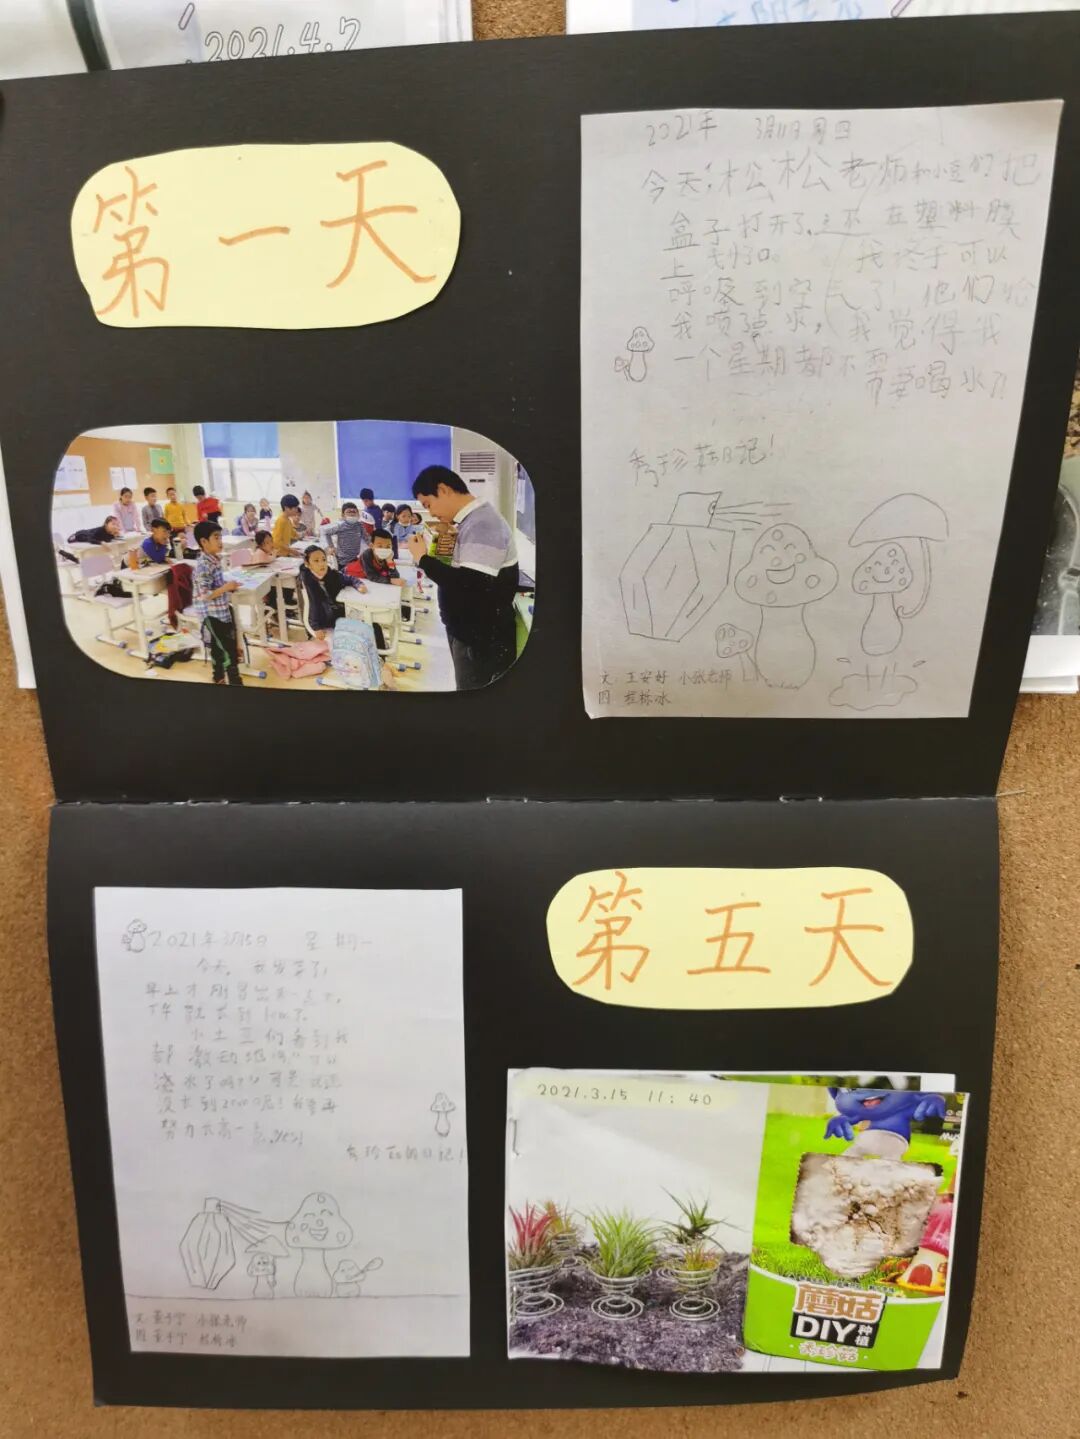 2021.4.7
第一天
2021年 3月11日 周四
今天，松松老师和小豆们把
盒子打开了，在塑料膜
上划了口。我终于可以
呼吸到空气了！他们给
我喷了点水，我觉得我
一个星期都不需
要喝水了！
秀珍菇日记！
文：王安好 小张老师
图 桂栋冰
第五天
2021年3月15日 星期一
今天，我发芽了！
早上才刚冒出来一点点，
下午就长到1cm了。
小土豆们看到我
都激动地问“可以
浇水了吗？”可是我还
没长到2cm呢！我要再
努力长高一点，yes！
秀珍菇的日记！
文 小张老师
图 桂栋冰
2021.3.15 11:40
蘑菇
DIY种植
·秀珍菇·